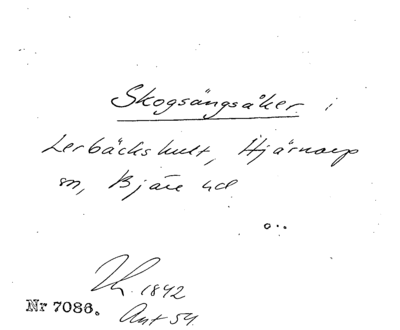 Skogsängsåker i
Lerbäckshult, Hjärnarp
sn, Bjäre hd
1842
Nr 7086. Akt 54.